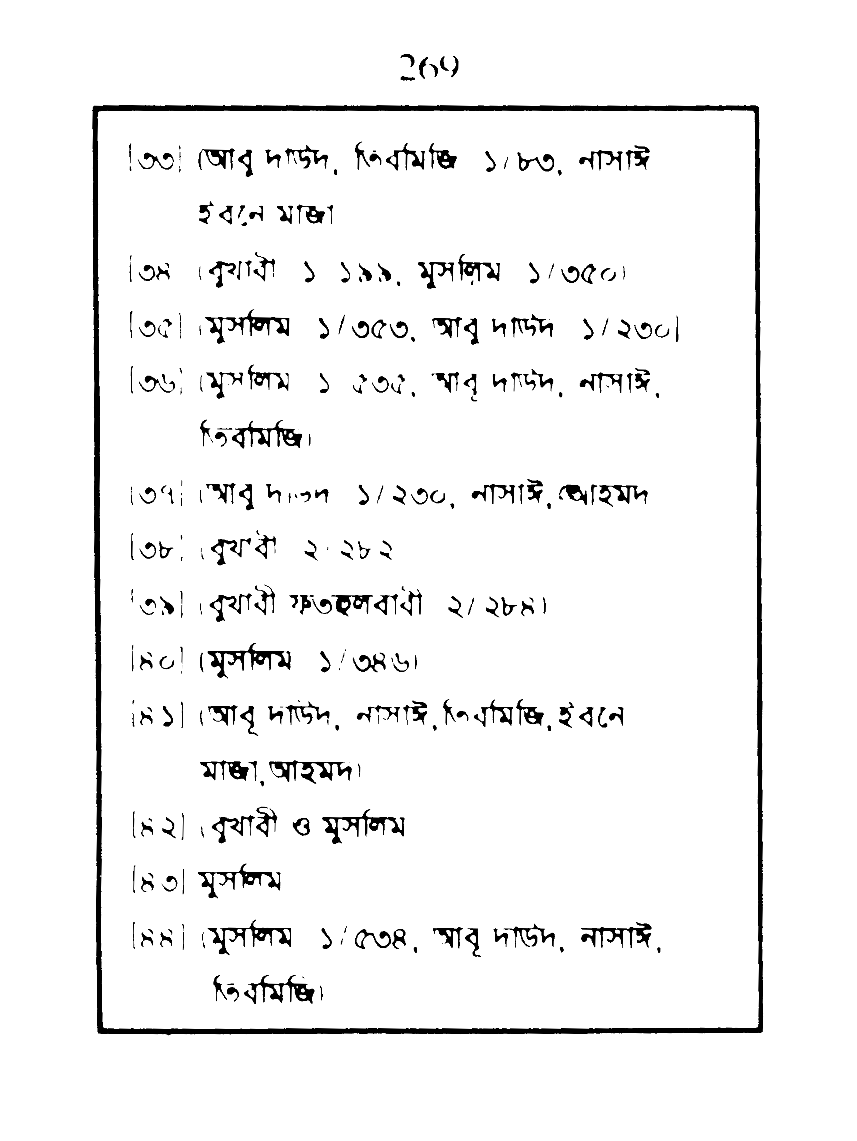 269
[৩৩] (আবু দাউদ, তিরমিজি ১/৮৩, নাসাঈ
ইবনে মাজা
[৩৪ (বুখারী ১ ১৯৯, মুসলিম ১/৩৫০)
[৩৫] (মুসলিম ১/৩৫৩, আবু দাউদ ১/২৩০]
[৩৬] (মুসলিম ১ ৫৩৫, আবূ দাউদ, নাসাঈ,
তিরমিজি)
[৩৭] (আবু দাউদ ১/২৩০, নাসাঈ, আহমদ
[৩৮] (বুখারী ২/২৮২
[৩৯] (বুখারী ফতহুলবারী ২/২৮৪)
[৪০] (মুসলিম ১/৩৪৬)
[৪১] (আবূ দাউদ, নাসাঈ, তিরমিজি, ইবনে
মাজা, আহমদ)
[৪২] (বুখারী ও মুসলিম
[৪৩] মুসলিম
[৪৪] (মুসলিম ১/৫৩৪, আবূ দাউদ, নাসাঈ,
তিরমিজি)